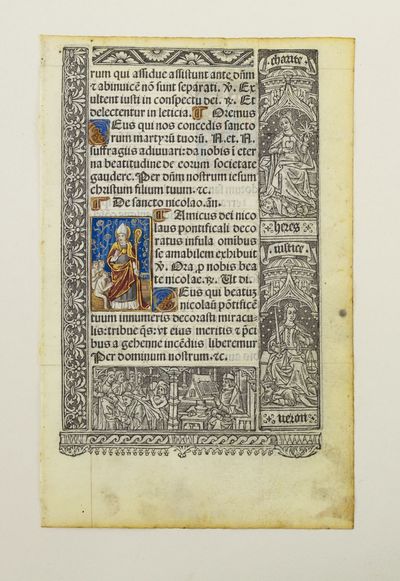 rum qui assidue assistunt ante dñm
⁊ abinuicẽ nõ sunt separati. ℣. Ex
ultent iusti in conspectu dei. ⁊. Et
delectentur in leticia. Oremus
Deus qui nos concedis sancto
rum martyrũ tuorũ. N. et. N.
suffragiis adiuuari: da nobis ĩ eter
na beatitudine de eorum societate
gaudere. Per dñm nostrum iesum
christum filium tuum. ⁊c.
De sancto nicolao. añ.
Amicus dei nico
laus pontificali deco
ratus infula omnibus
se amabilem exhibuit
℣. Ora p nobis bea
te nicolae. ⁊. Ut di.
Deus qui beatũ
nicolaũ põtificẽ
tuum innumeris decorasti miracu
lis: tribue q̃s: vt eius meritis ⁊ p̃ci
bus a gehenne incẽdiis liberemur
Per dominum nostrum. ⁊c.
charite
heres
iustice
neron